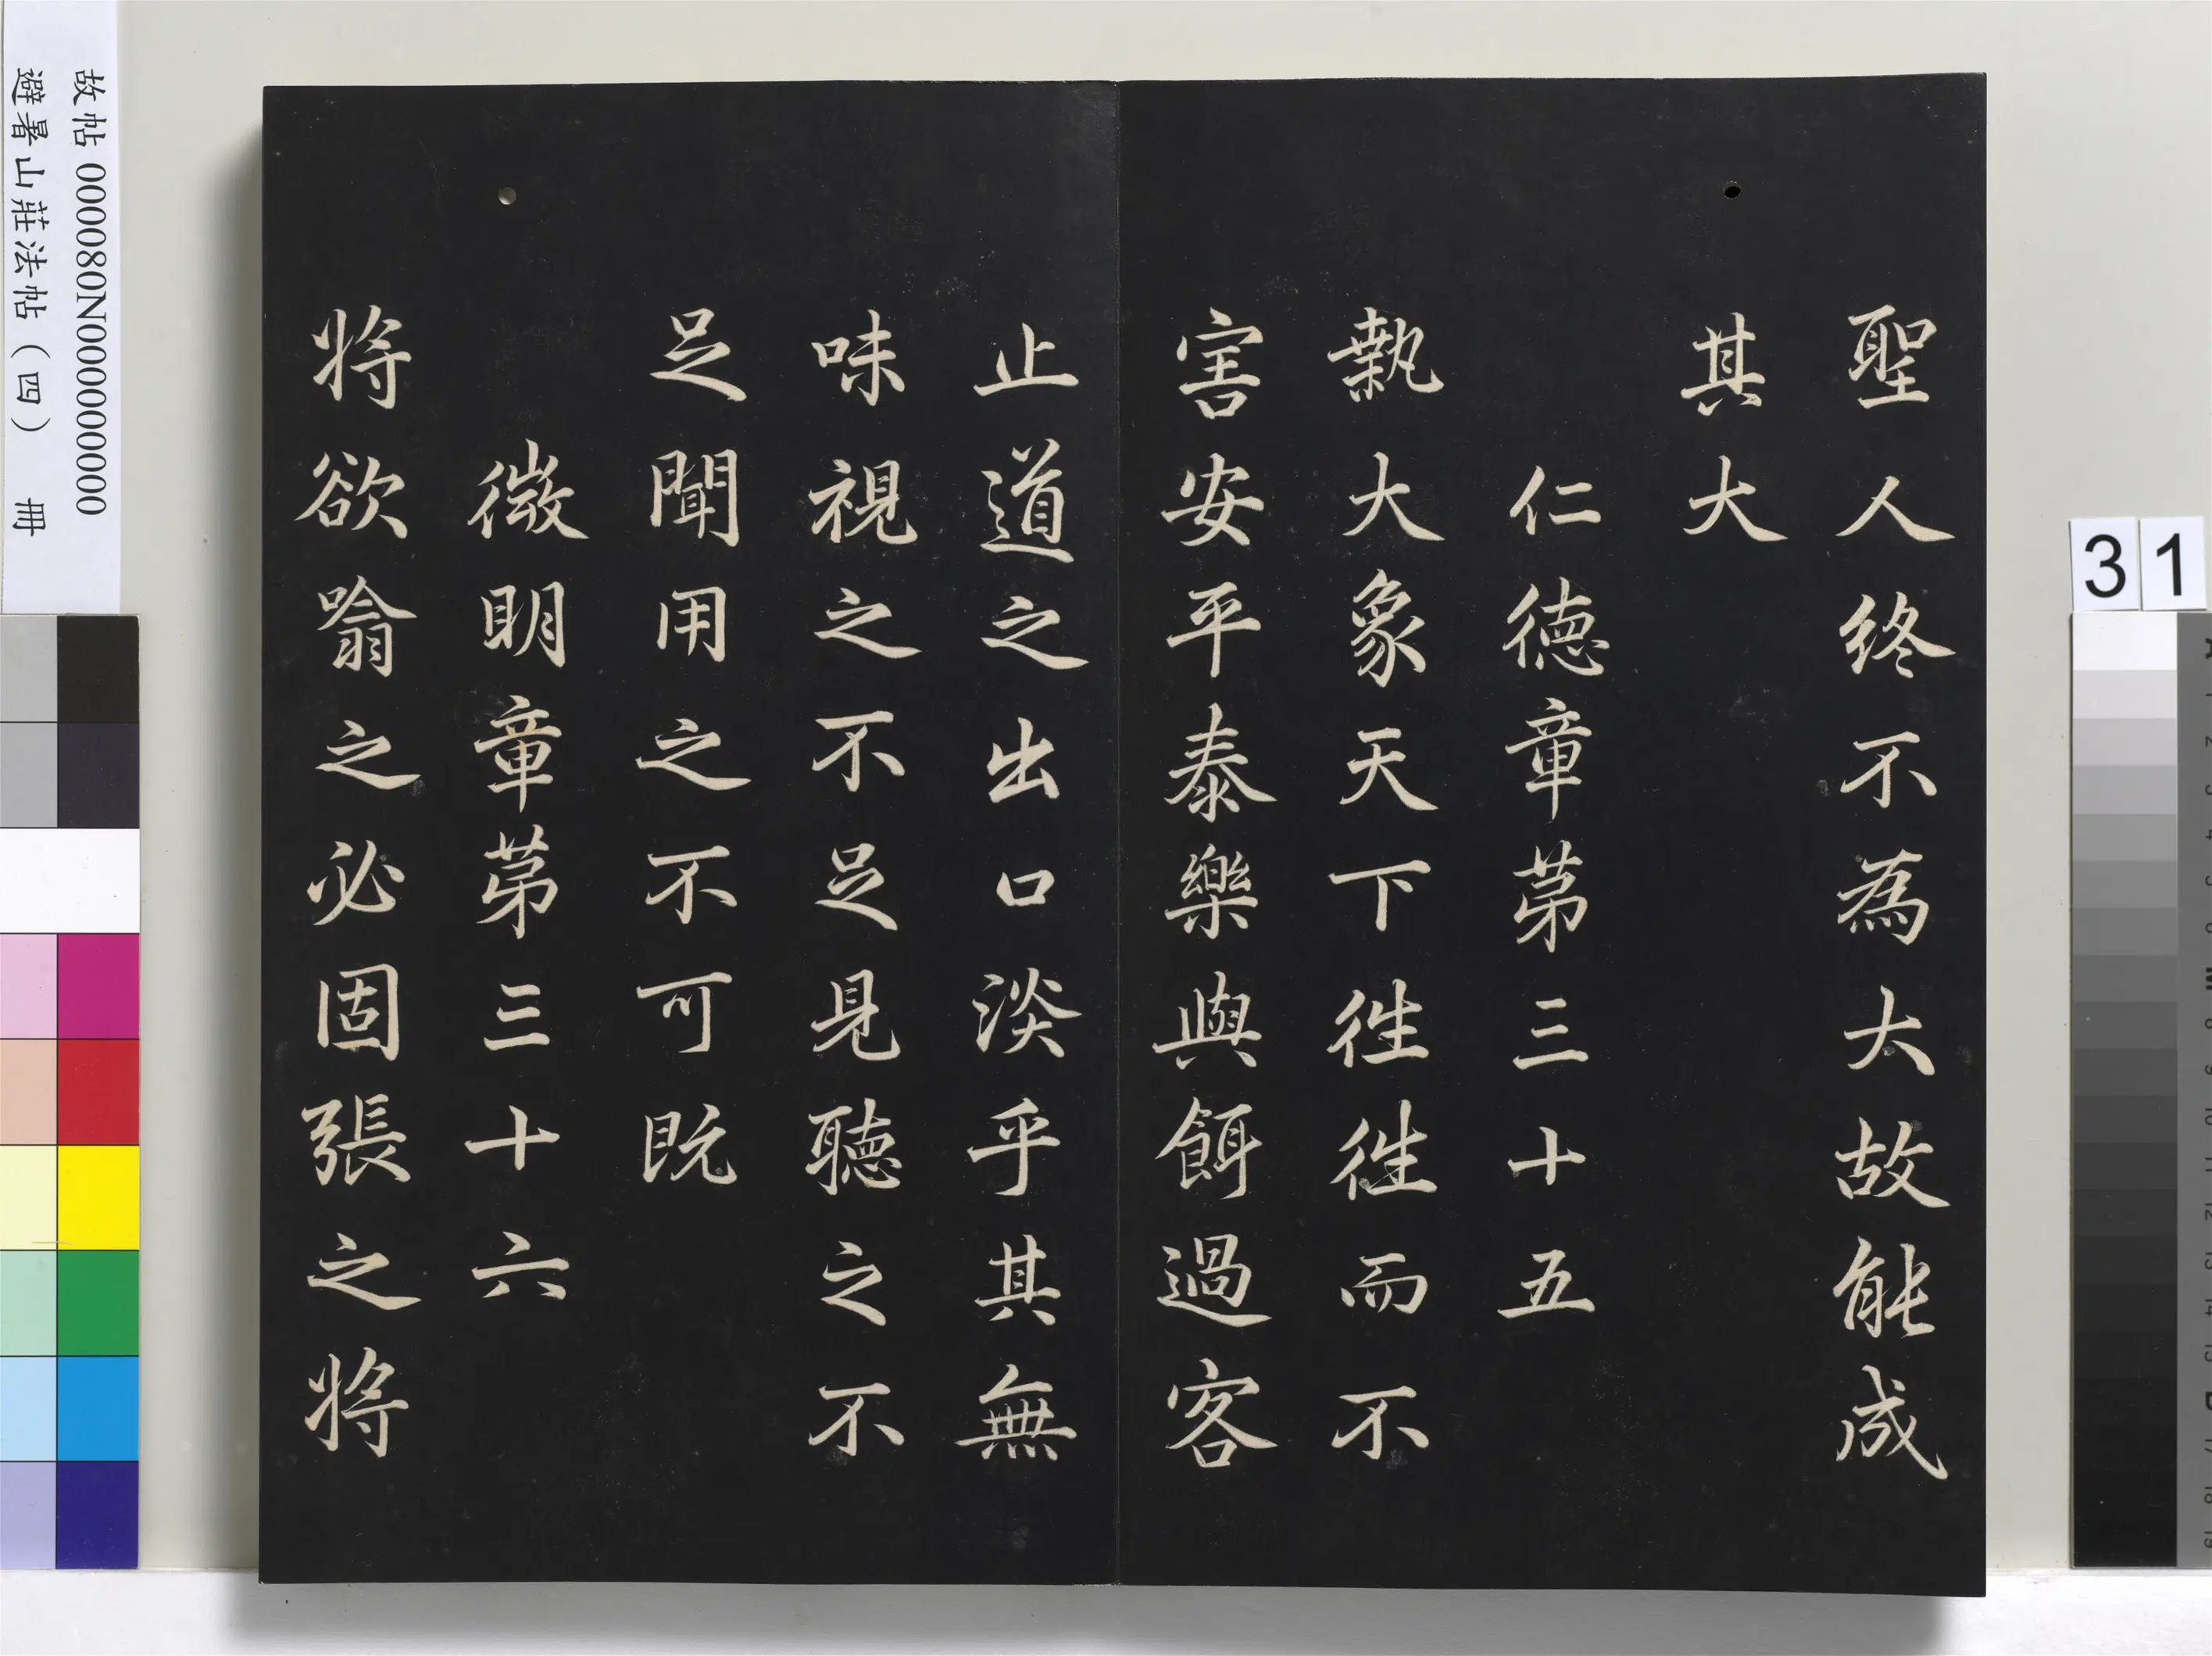 聖人終不為大故能成
其大
仁德章苐三十五
執大象天下徃徃而不
害安平泰樂與餌過客
止道之出口淡乎其無
味視之不足見聽之不
足聞用之不可既
微明章苐三十六
将欲噏之必固張之将
故帖 000080N000000000
避暑山莊法帖（四） 冊
31